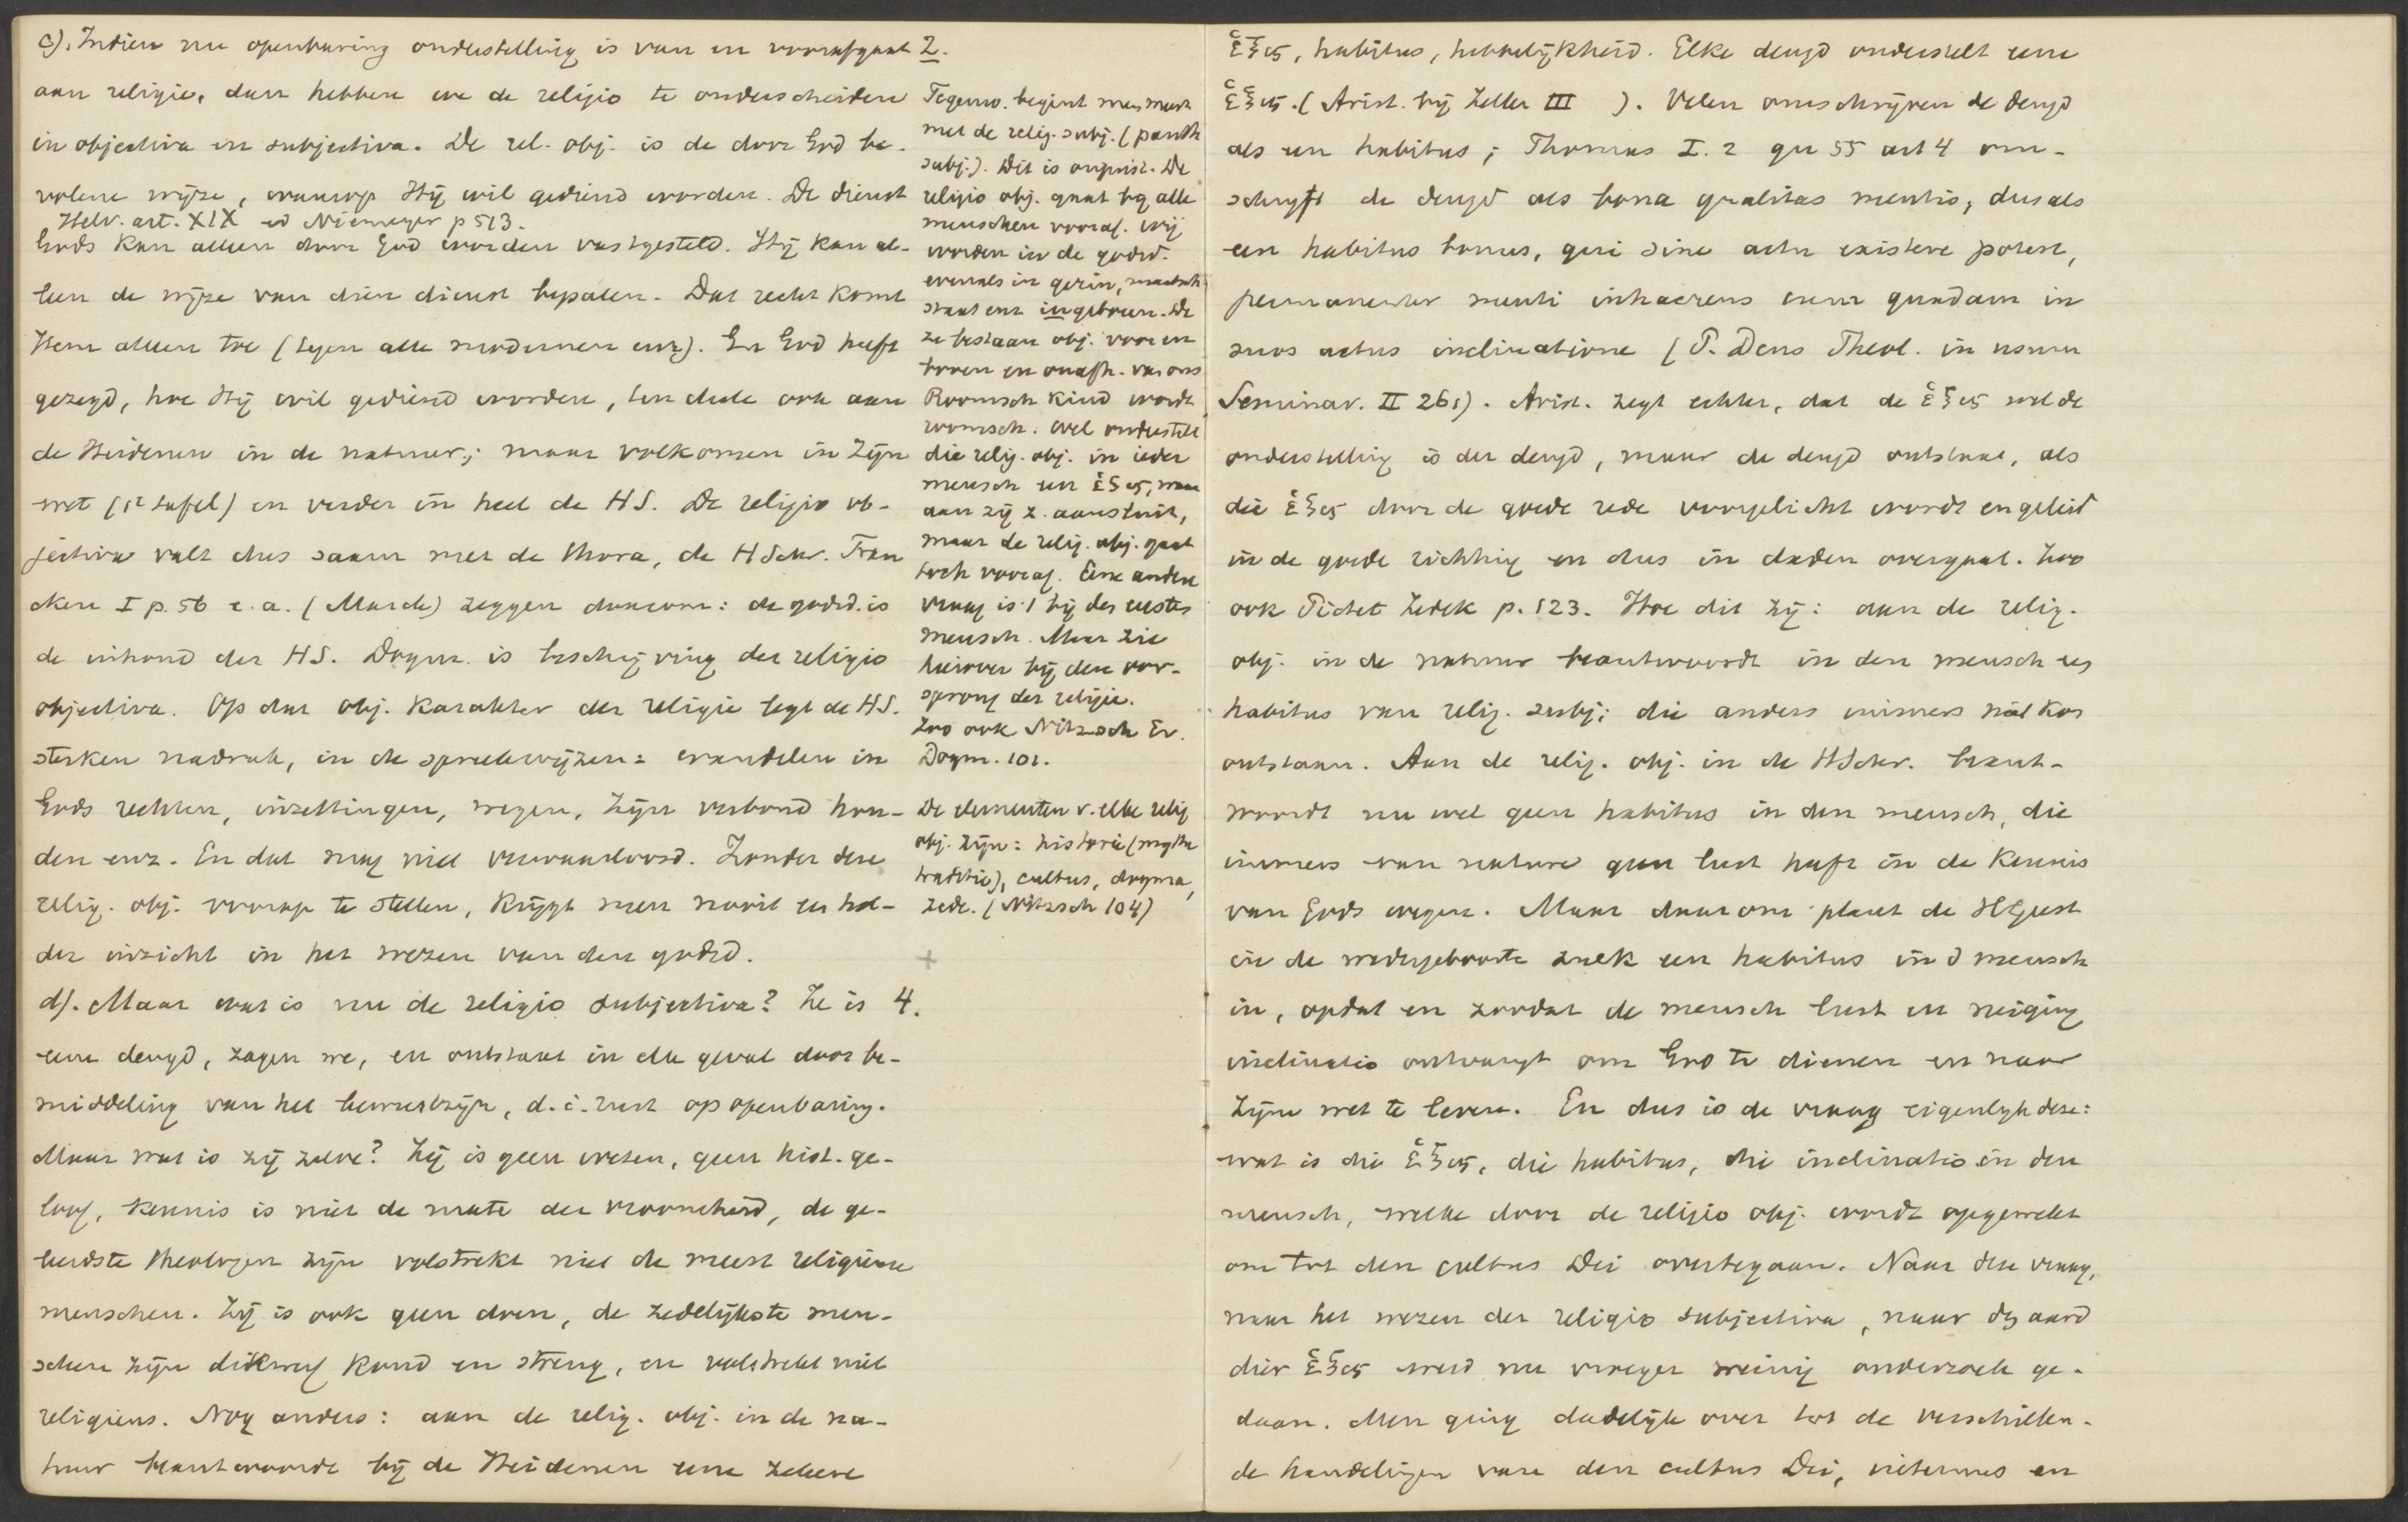 c). Indien nu openbaring onderstelling is van en voorafgaat
aan religie, dan hebben we de religio te onderscheiden
in objectiva en subjectiva. De rel. obj. is de door God be-
volene wijze, waarop Hij wil gediend worden. De dienst
Helv. art. XIX ed Niemeyer p 513.
Gods kan alleen door God worden vastgesteld. Hij kan al-
leen de wijze van dien dienst bepalen. Dat recht komt
Hem alleen toe (tegen alle modernen enz). En God heeft
gezegd, hoe Hij wil gediend worden, ten deele ook aan
de Heidenen in de natuur; maar volkomen in Zijn
wet (1e tafel) en verder in heel de HS. De religio ob-
jectiva valt dus saam met de thora, de HSchr. Fran
cken I p. 56 e.a. (Marck) zeggen daarom: de godsd. is
de inhoud der HS. Dogm. is beschrijving der religio
objectiva. Op dat obj. karakter der religie legt de HS.
sterken nadruk, in de spreekwijzen: wandelen in
Gods rechten, inzettingen, wegen, Zijn verbond hou-
den enz. En dat mag niet verwaarloosd. Zonder deze
relig. obj. voorop te stellen, krijgt men nooit en hel-
der inzicht in het wezen van den godsd.
d). Maar wat is nu de religio subjectiva? Ze is
eene deugd, zagen we, en ontstaat in elk geval door be-
middeling van het bewustzijn, d.i. rust op openbaring.
Maar wat is zij zelve? Zij is geen weten, geen hist. ge-
loof, kennis is niet de mate der vroomheid, de ge-
leerdste theologen zijn volstrekt niet de meest religieuse
menschen. Zij is ook geen doen, de zedelijkste men-
schen zijn dikwerf koud en streng, en volstrekt niet
religieus. Nog anders: aan de relig. obj. in de na-
tuur beantwoordde bij de Heidenen eene zekere
2.
Tegenw. begint men meest
met de relig. subj. (panth
subj.). Dit is onjuist. De
religio obj. gaat bij alle
menschen vooraf. Wij
worden in de godsd.
evenals in gezin, maatsch
staat enz ingeboren. De
ze bestaan obj. voor en
boven en onafh. van ons
Roomsch kind wordt
roomsch. Wel onderstelt
die relig. obj. in ieder
mensch een ἕξις, waar
aan zij z. aansluit,
maar de relig. obj. gaat
toch vooraf. Eene andere
vraag is: bij den eersten
mensch. Maar zie
hierover bij den oor-
sprong der religie.
Zoo ook Nitzsch Ev.
Dogm. 101.
De elementen v. elke relig
obj. zijn: historie (mythe
traditie), cultus, dogma,
zede. (Nitzsch 104)
+
4.
ἕξις, habitus, hebbelijkheid. Elke deugd onderstelt eene
ἕξις. (Arist. bij Zeller III ). Velen omschrijven de deugd
als een habitus; Thomas I. 2 qu 55 art 4 om-
schrijft de deugd als bona qualitas mentis, dus als
een habitus bonus, qui sine actu existere potest,
permanenter menti inhaerens cum quadam in
suos actus inclinatione (P. Dens Theol. in usum
Seminar. II 261). Arist. zegt echter, dat de ἕξις wel de
onderstelling is der deugd, maar de deugd ontstaat, als
die ἕξις door de goede rede voorgelicht wordt en geleid
in de goede richting en dus in daden overgaat. Zoo
ook Pictet Zedek p. 123. Hoe dit zij: aan de relig.
obj. in de natuur beantwoordt in den mensch een
habitus van relig. subj; die anders immers niet kon
ontstaan. Aan de relig. obj. in de HSchr. beant-
woordt nu wel geen habitus in den mensch, die
immers van nature geen lust heeft in de kennis
van Gods wegen. Maar daarom plant de HGeest
in de wedergeboorte zulk een habitus in d mensch
in, opdat en zoodat de mensch lust en neiging
inclinatio ontvangt om God te dienen en naar
Zijn wet te leven. En dus is de vraag eigenlijk deze:
wat is die ἕξις, die habitus, die inclinatio in den
mensch, welke door de religio obj. wordt opgewekt
om tot den cultus Dei overtegaan. Naar deze vraag,
naar het wezen der religio subjectiva, naar den aard
dier ἕξις werd nu vroeger weinig onderzoek ge-
daan. Men ging dadelijk over tot de verschillen-
de handelingen van den cultus Dei, internus en